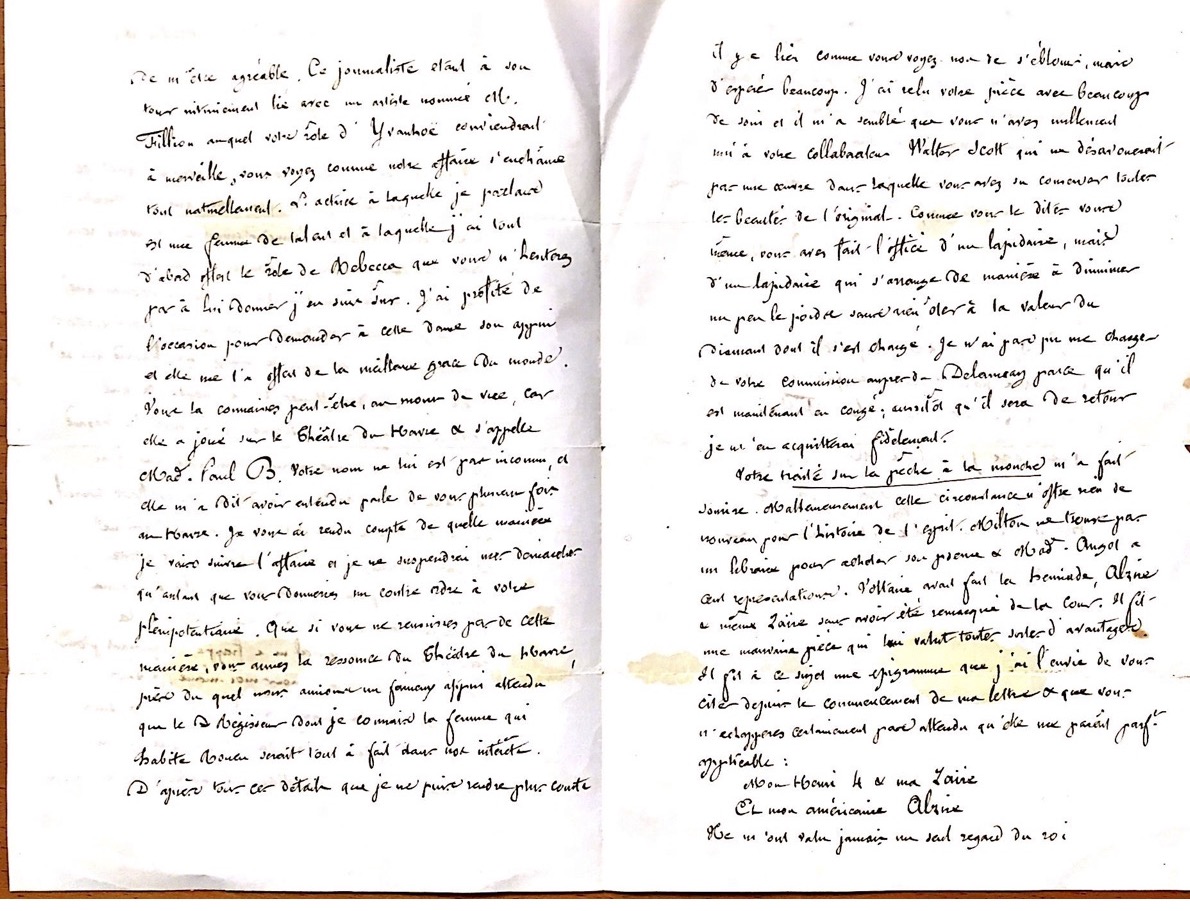 De m'être agréable. Ce journaliste étant à son
tour intimement lié avec un artiste nommé M.
Tillion auquel votre rôle d'Yvanhoë conviendrait
à merveille, vous voyez comme notre affaire s'enchaine
tout naturellement. L'actrice à laquelle je parlais
est une femme de talent et à laquelle j'ai tout
d'abord offert le rôle de Rebecca que vous n'hesiterez
pas à lui donner j'en suis sûr. J'ai profité de
l'occasion pour demander à cette dame son appui
et elle me l'a offert de la meilleure grace du monde.
Vous la connaissez peut-être, au moins de vue, car
elle a joué sur le Théâtre du Havre & s'appelle
Mad. Paul B. Votre nom ne lui est pas inconnu, et
elle m'a dit avoir entendu parle de vous plusieurs fois
au Havre. Je vous ai rendu compte de quelle manière
je vais suivre l'affaire et je ne suspendrai mes demarches
qu'autant que vous donneriez un contre ordre à votre
plénipotentiaire. Que si vous ne reussissez pas de cette
manière, vous auriez la ressource du Théâtre du Havre,
près du quel nous aurions un fameux appui attendu
que le Régisseur dont je connais la femme qui
habite Rouen serait tout à fait dans nos intérêts.
D'après tous ces détails que je ne puis rendre plus courts
il y a lieu comme vous voyez non de s'éblouir, mais
d'espérer beaucoup. J'ai relu votre pièce avec beaucoup
de soin et il m'a semblé que vous n'avez nullement
nui à votre collaborateur Walter Scott qui ne désavouerait
pas une œuvre dans laquelle vous avez su conserver toutes
les beautés de l'original. Comme vous le dites vous
même, vous avez fait l'office d'un lapidaire, mais
d'un lapidaire qui s'arrange de manière à diminuer
un peu le poids sans rien ôter à la valeur du
diamant dont il s'est chargé. Je n'ai pas pu me charger
de votre commission auprès de Delameay parce qu'il
est maintenant en congé; aussitôt qu'il sera de retour
je m'en acquitterai fidelement.
Votre traité sur la pêche à la mouche m'a fait
sourire. Malheureusement cette circonstance n'offre rien de
nouveau pour l'histoire de l'esprit. Milton ne trouve pas
un libraire pour acheter son poeme & Mad. Angot a
cent représentations. Voltaire avait fait la henriade, Alzire
& même Zaïre sans avoir été remarqué de la Cour. Il fit
une mauvaise pièce qui lui valut toutes sortes d'avantages.
Il fit à ce sujet une epigramme que j'ai l'envie de vous
citer depuis le commencement de ma lettre & que vous
n'echapperez certainement pas attendu qu'elle me parait parf.t
applicable :
Mon Henri 4 & ma Zaïre
Et mon américaine Alzire
Ne m'ont valu jamais un seul regard du roi